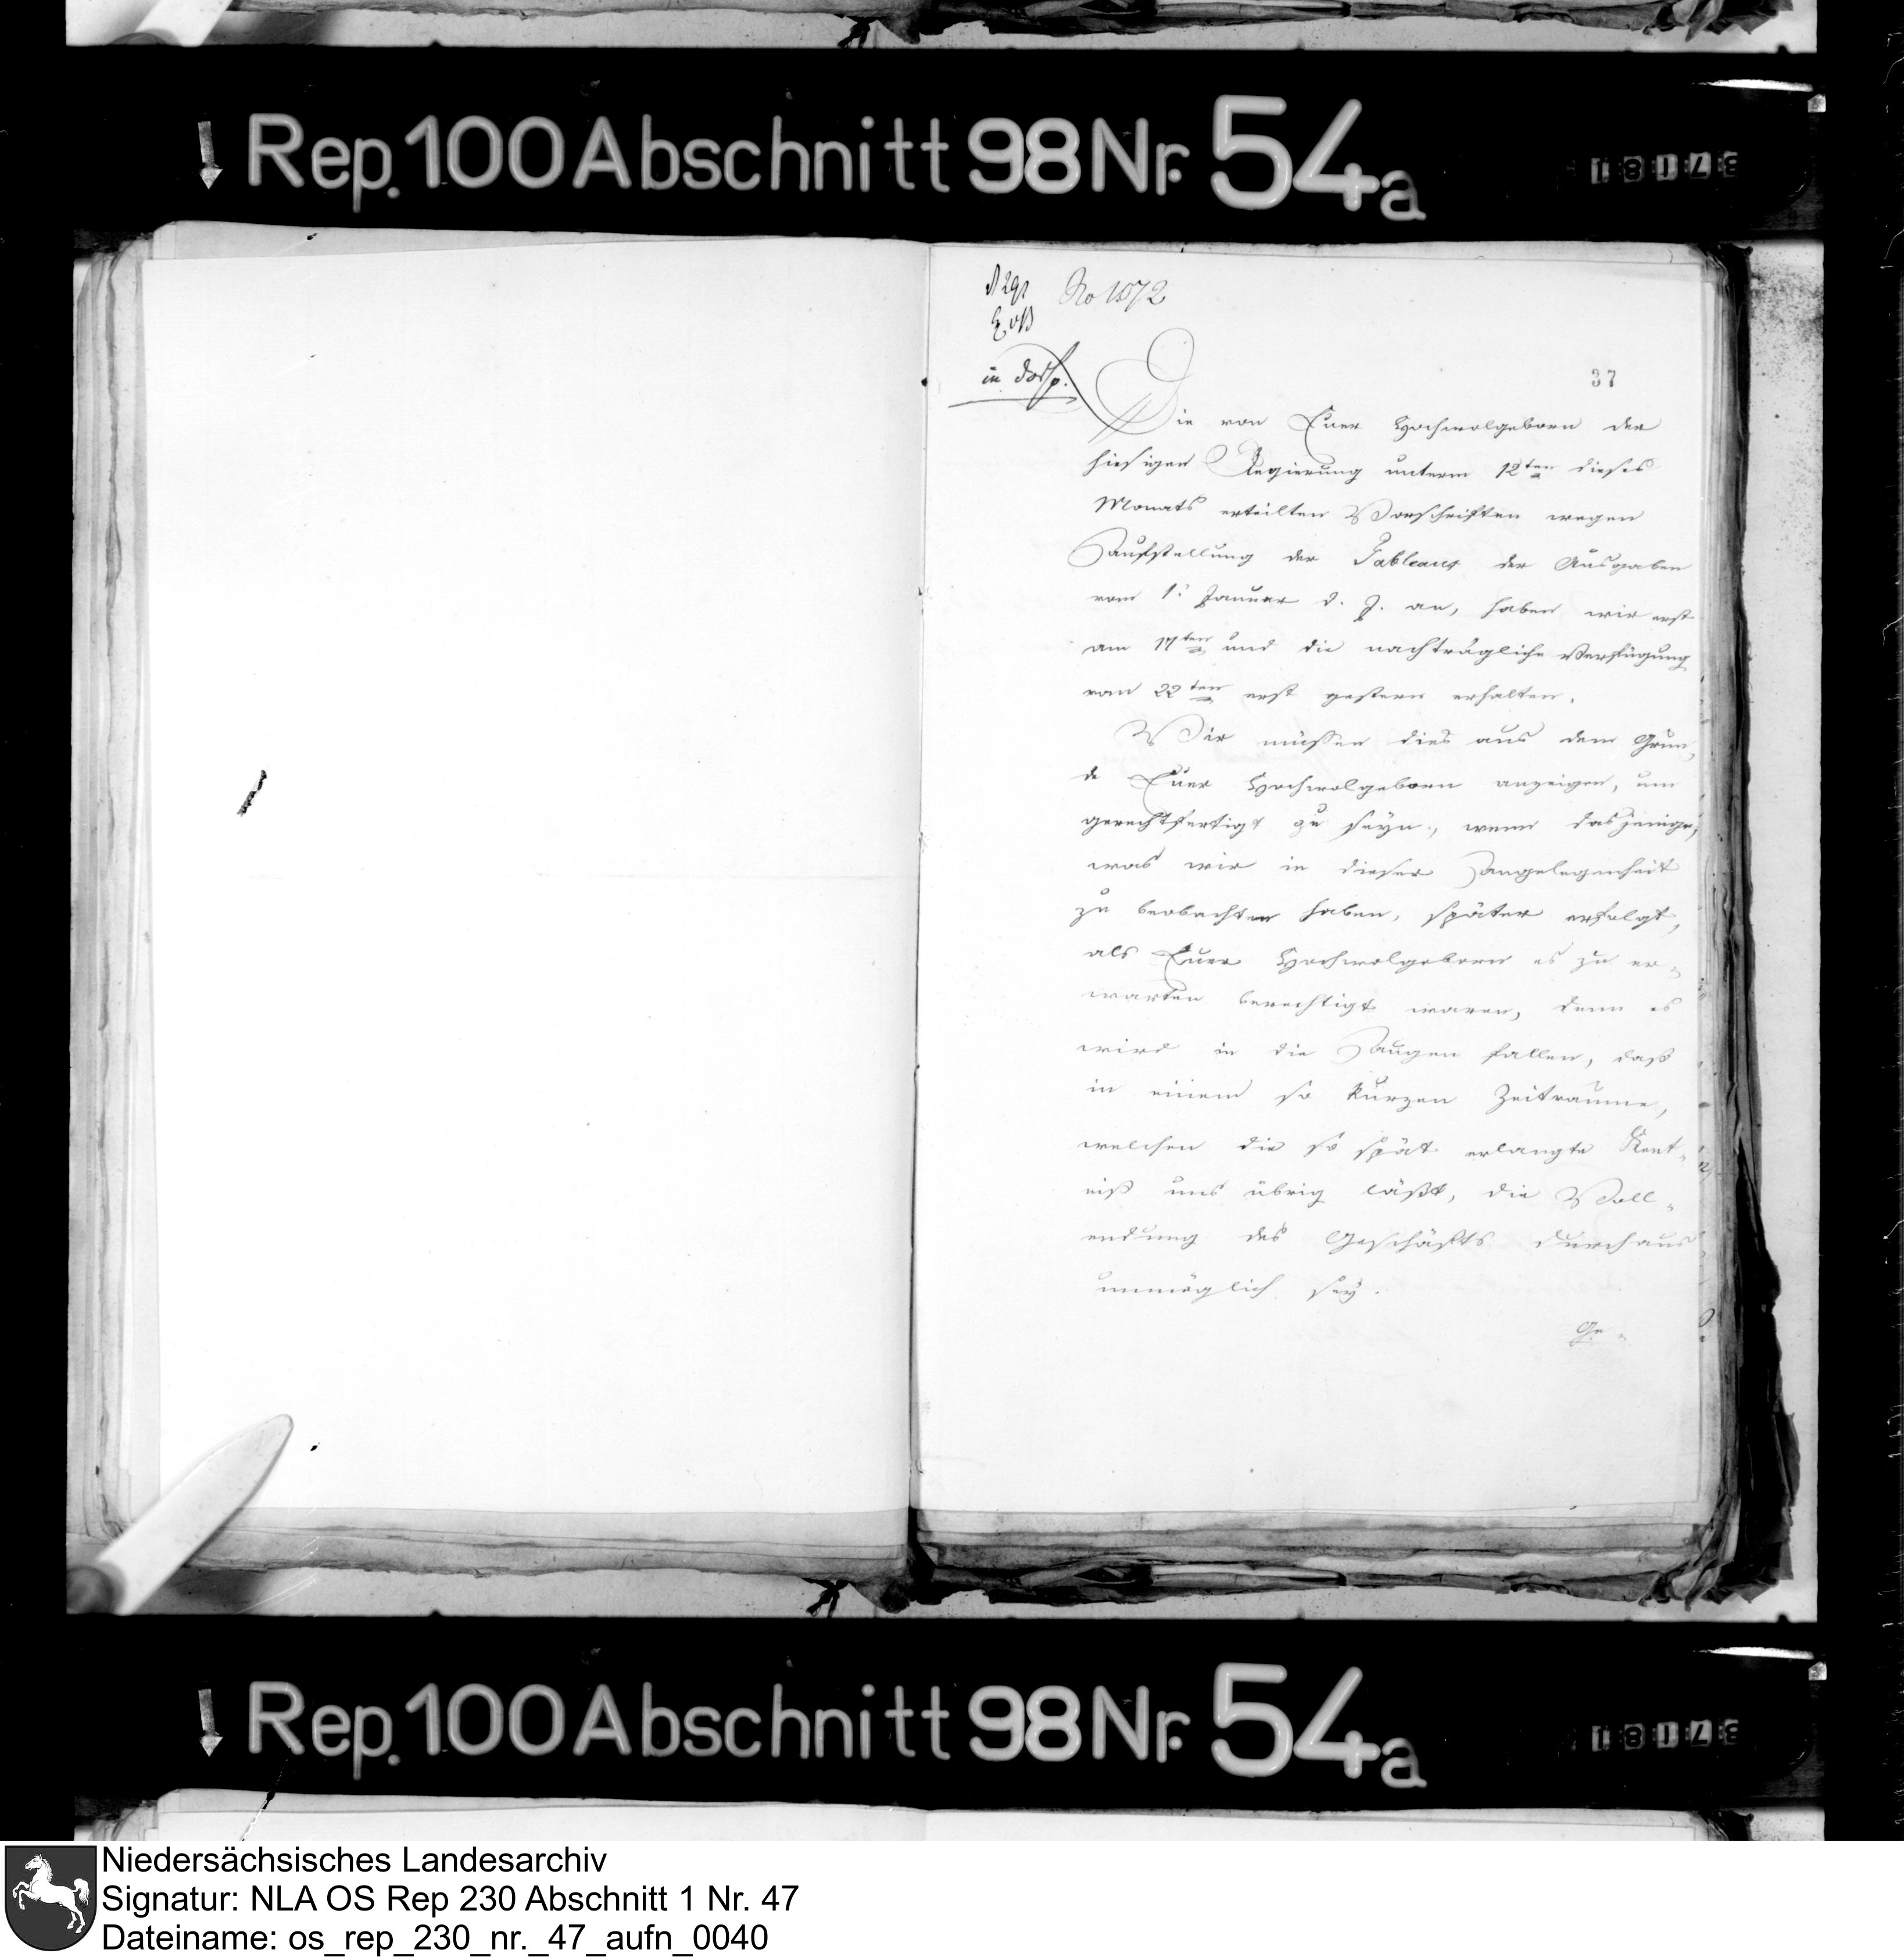 Rep. 100 Abschnitt 98 Nr. 54a
No 1072
37
Die von Euer Hochwolgeborn der
hiesigen Regierung unterm 12ten dieses
Monats erteilten Vorschriften wegen
Aufstellung der Tableaus der Ausgaben
vom 1. Januar d. J. an, haben wir erst
am 17ten und die nachträgliche Verfügung
von 22ten erst gestern erhalten.
Wir müssen dies aus dem Grun-
de Euer Hochwolgeborn anzeigen, um
gerechtfertigt zu seyn, wenn dasjenige,
was wir in dieser Angelegenheit
zu beobachten haben, später erfolgt,
als Euer Hochwolgeborn es zu er-
warten berechtigt waren, denn es
wird in die Augen fallen, daß
in einem so kurzen Zeitraume,
welchen die so spät erlangte Kent-
niß uns übrig läßt, die Voll-
endung des Geschäfts durchaus
unmöglich sey.
Ge-
Rep. 100 Abschnitt 98 Nr. 54a
Niedersächsisches Landesarchiv
Signatur: NLA OS Rep 230 Abschnitt 1 Nr. 47
Dateiname: os_rep_230_nr._47_aufn_0040